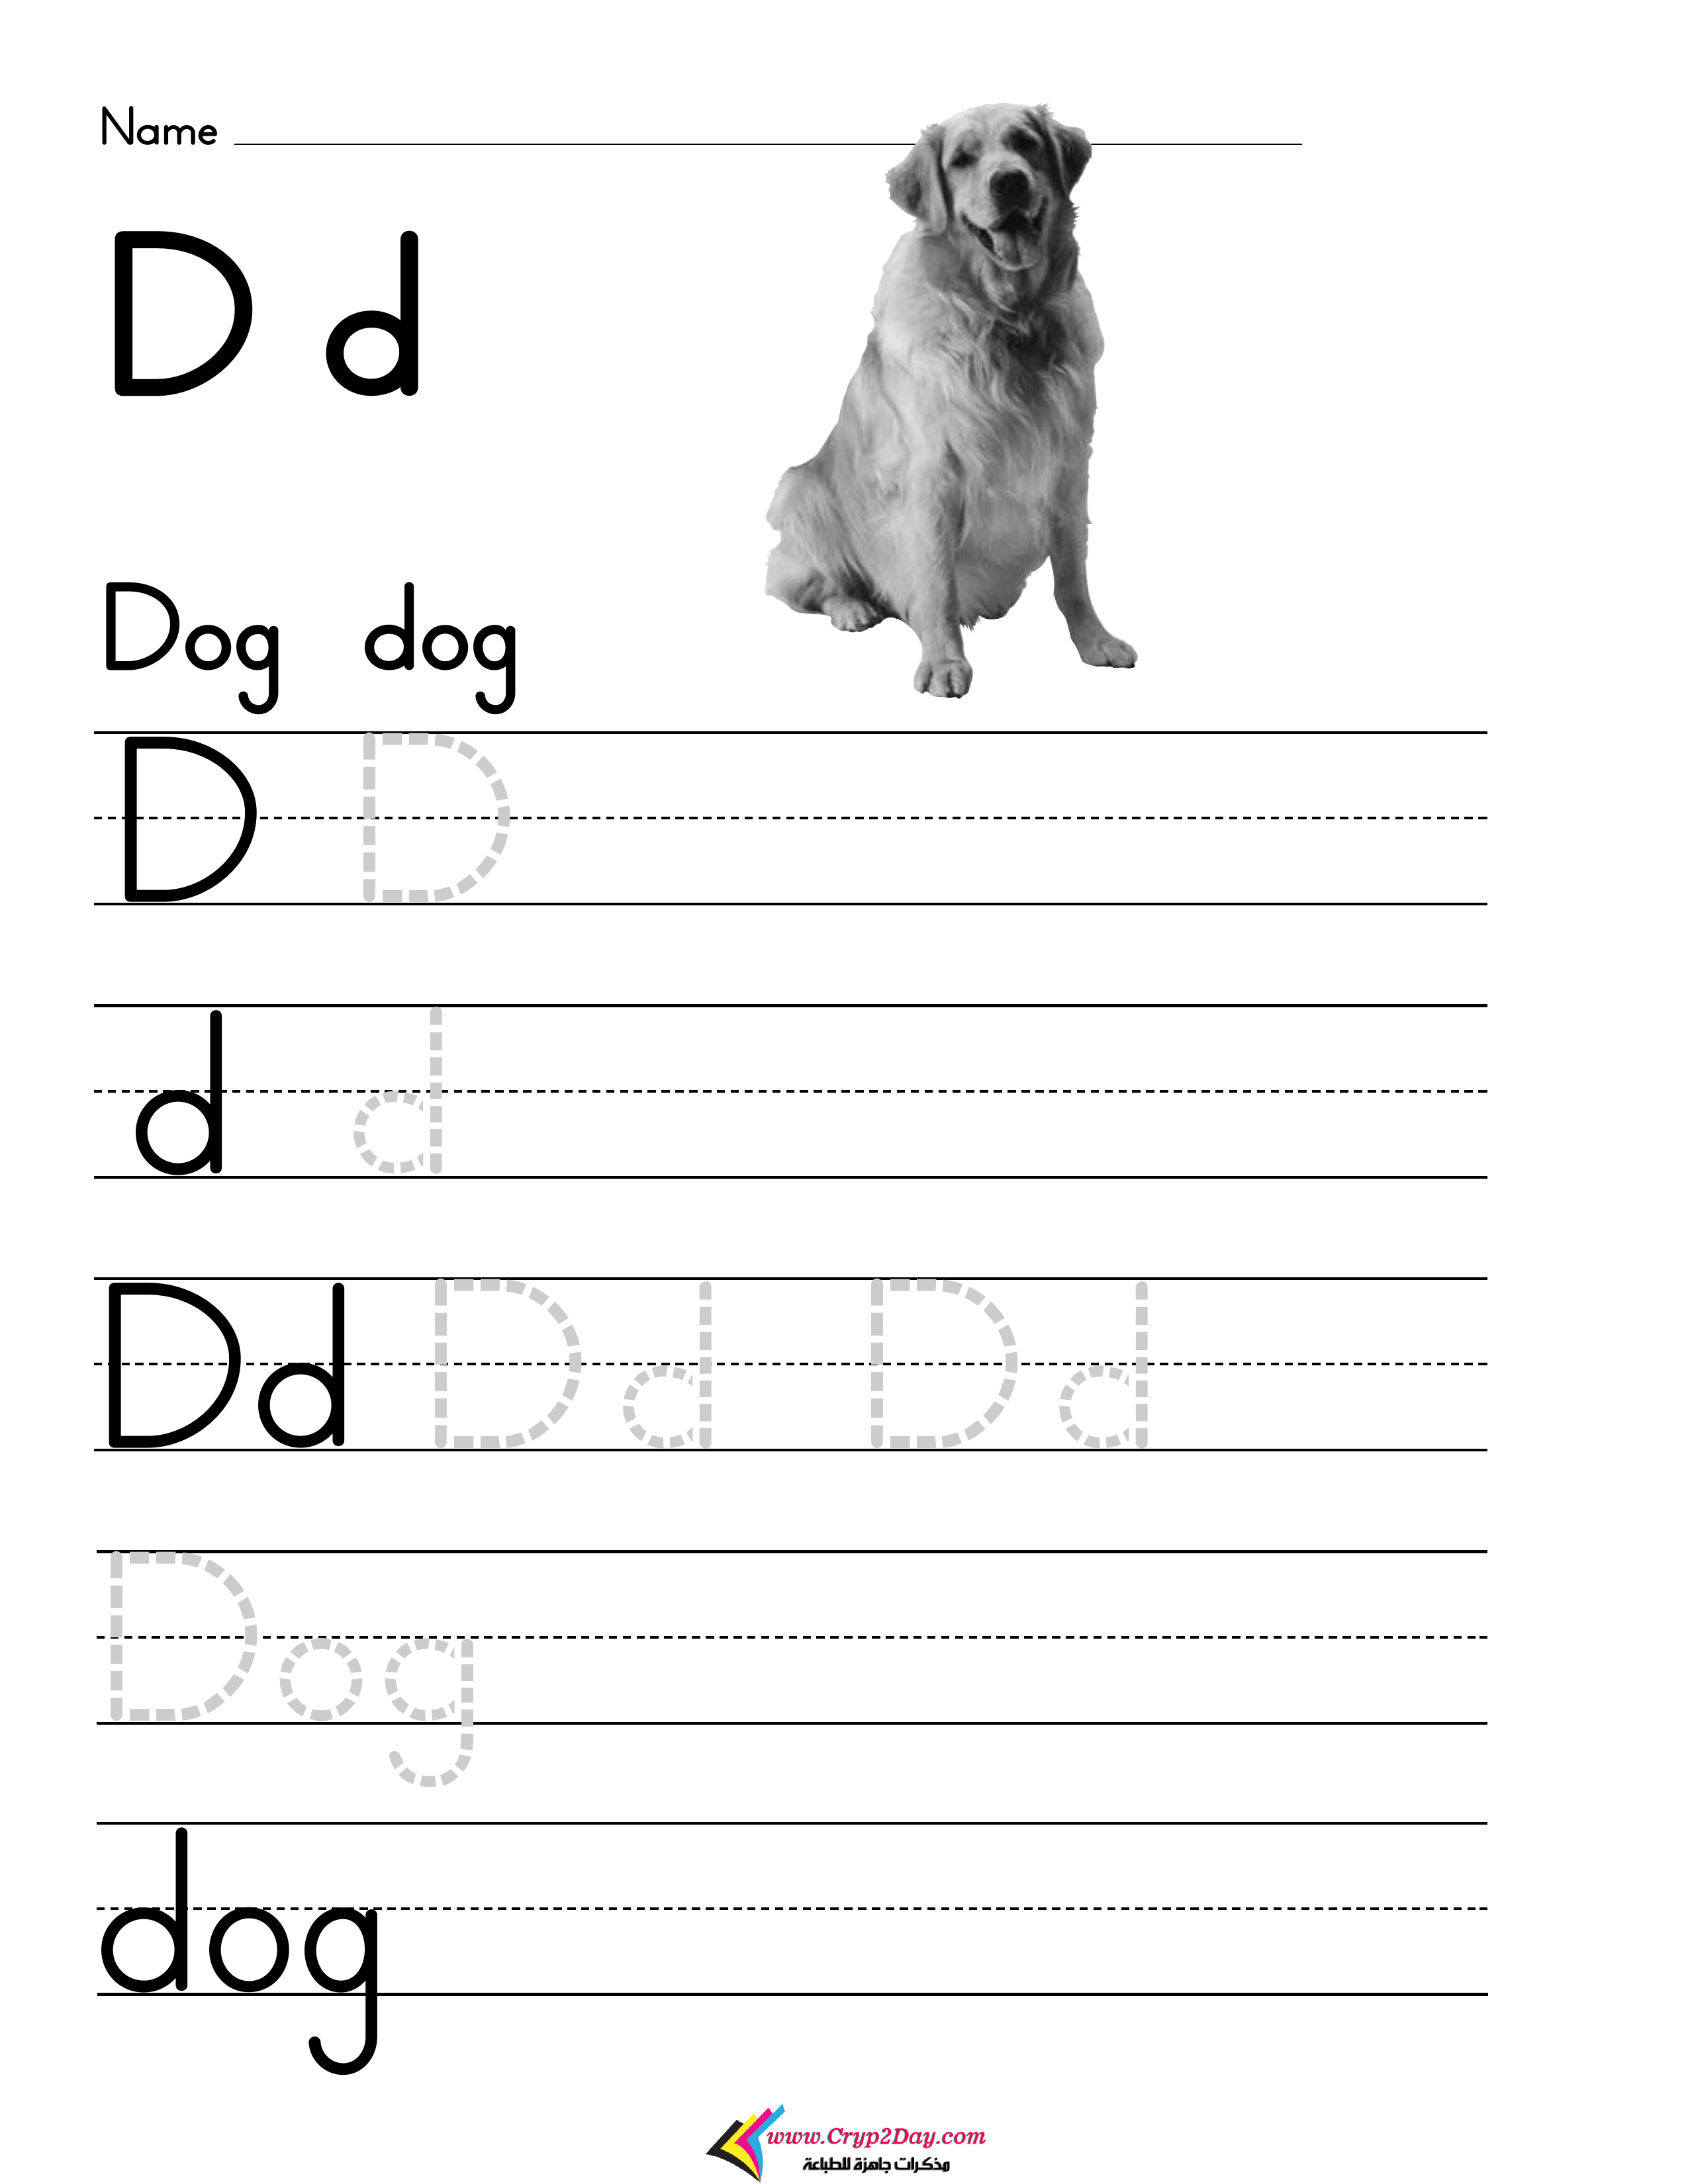 Name
D d
Dog dog
D D
d d
Dd Dd Dd
Dog
dog
www.Cryp2Day.com
مذكرات جاهزة للطباعة